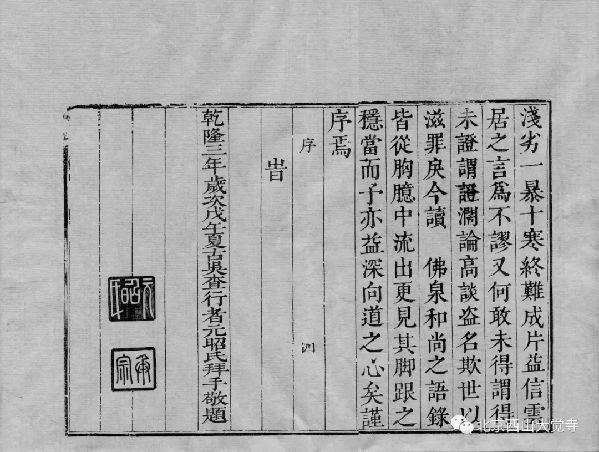 淺劣一暴十寒終難成片益信雲
居之言爲不謬又何敢未得謂得
未證謂證濶論高談盗名欺世以
滋罪戾今讀　佛泉和尚之語錄
皆從胸臆中流出更見其脚跟之
穩當而予亦益深向道之心矣謹
序焉
序
四
旹
乾隆三年歲次戊午夏古吳查行者元昭氏拜手敬題
北京西山大觉寺